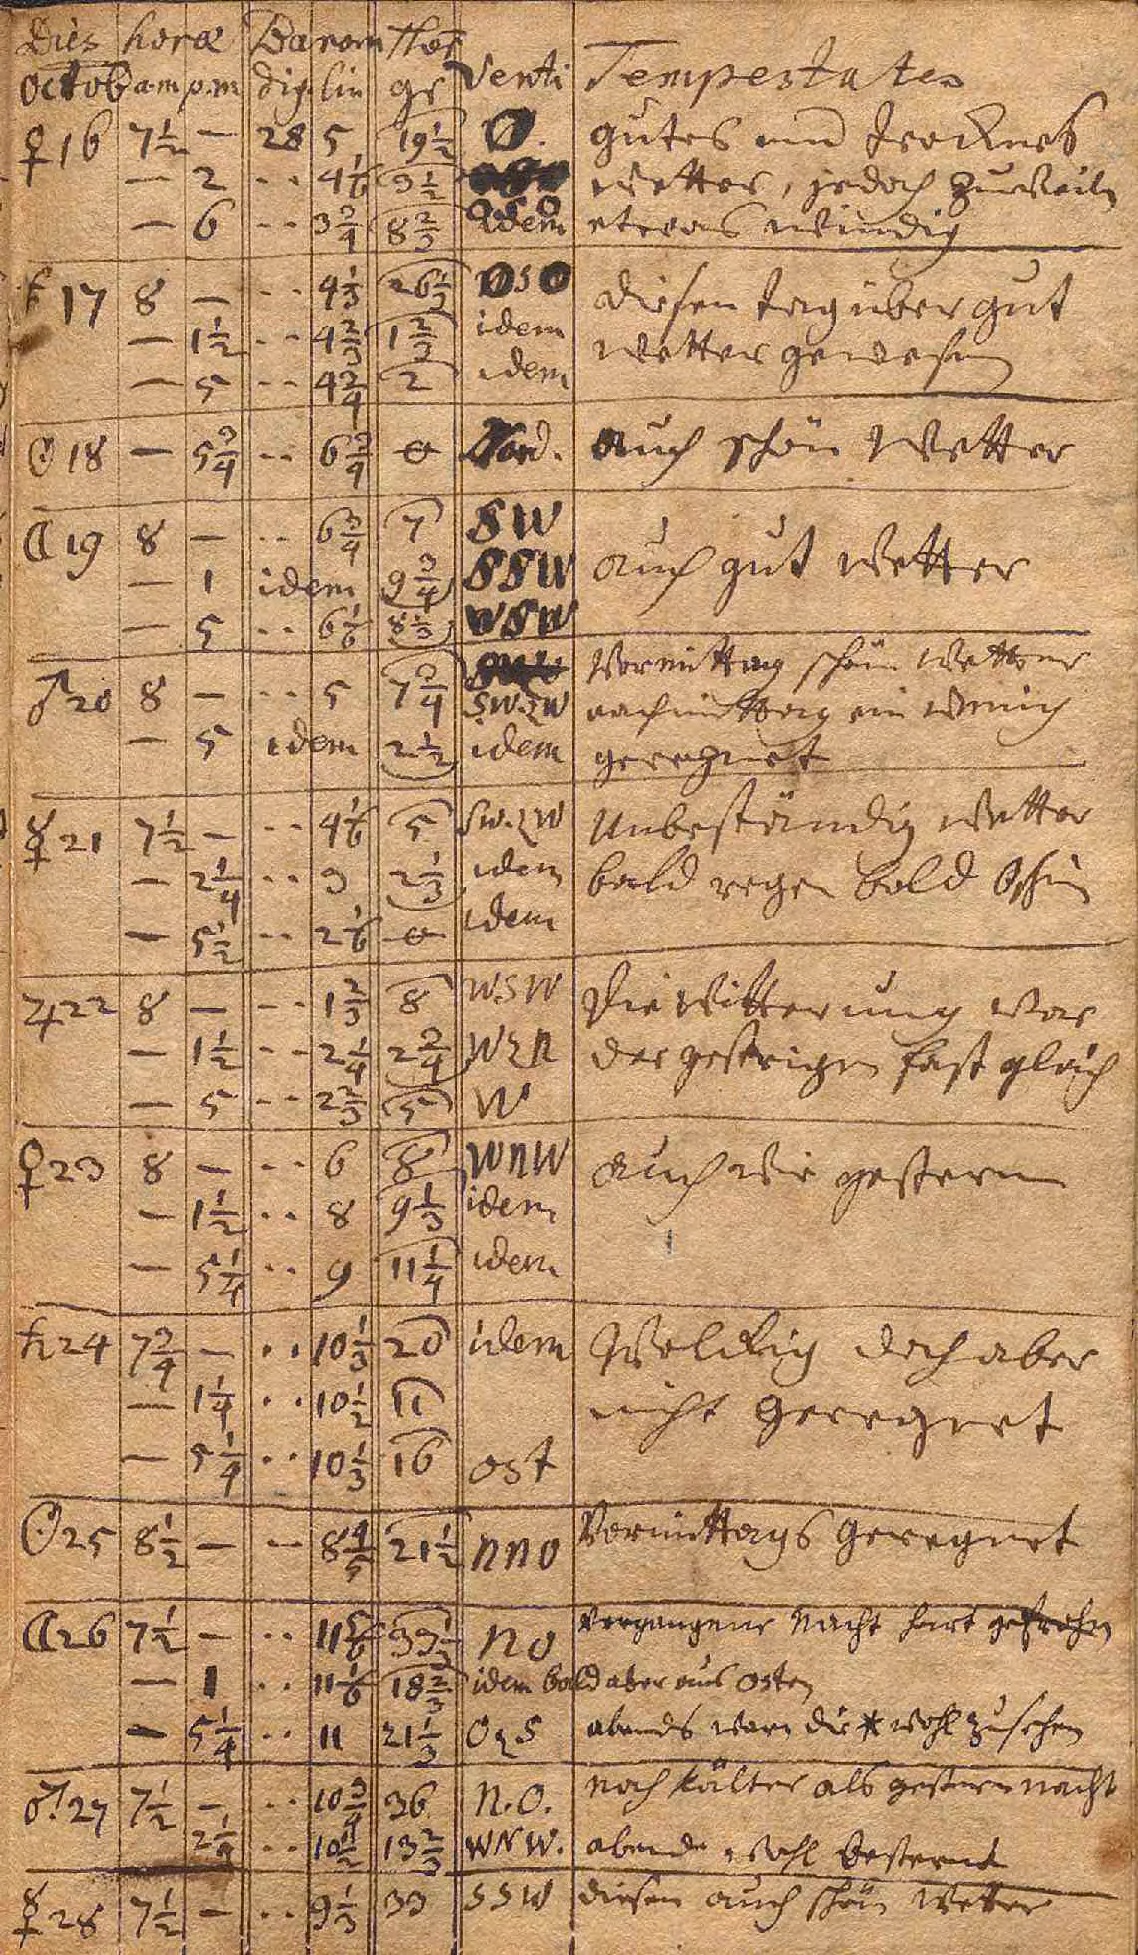 Dies horæ Barom Ther Venti Tempestates
Octob a.m p.m dig. lin gr
♀ 16 7½ — 28 5 19½ O. gutes und trocknes
— 2 .. 4⅙ 3½ wetter, jedoch zuweiln
— 6 .. 3¾ 8⅔ idem etwas windig
♄ 17 8 — .. 4⅓ 26½ OSO diesen tag über gut
— 1½ .. 4⅔ 1⅔ idem wetter gewesen
— 5 .. 4¾ 2 idem
☉ 18 — 5¾ .. 6¾ 0 Nord. auch schön Wetter
☾ 19 8 — .. 6¾ 7 SW auch gut Wetter
— 1 idem 9¾ SSW
— 5 .. 6⅙ 8⅓ WSW
♂ 20 8 — .. 5 7¾ SW.zW Vormittag schön Wetter
nachmittag ein wenich
— 5 idem 2½ idem geregnet
☿ 21 7½ — .. 4⅙ 5 SW.zW Unbeständig Wetter
— 2¼ .. 3 2⅓ idem bald regen bald schön
— 5½ .. 2⅙ 0 idem
♃ 22 8 — .. 1⅔ 8 WSW Die Witterung war
— 1½ .. 2¼ 2¾ WzN der gestrigen fast gleich
— 5 .. 2⅔ 5 W
♀ 23 8 — .. 6 8 WNW auch wie gestern
— 1½ .. 8 9⅓ idem
— 5¼ .. 9 11¼ idem
♄ 24 7¾ — .. 10⅓ 20 idem Wolckig doch aber
— 1¼ .. 10½ 11 nicht geregnet
— 5¼ .. 10⅓ 16 ost
☉ 25 8½ — .. 8⅘ 21½ NNO Vormittags geregnet
☾ 26 7½ — .. 11⅚ 33½ NO Vergangene Nacht hart gefrohrn
— 1 .. 11⅙ 18⅔ idem bald aber aus Osten
— 5¼ .. 11 21⅓ OzS abends warn die * wohl zusehen
♂ 27 7½ — .. 10¾ 36 N.O. noch kälter als gestern nacht
2¼ .. 10½ 13⅔ WNW. abends wohl besternt
☿ 28 7½ — .. 9⅓ 33 SSW diesen auch schön Wetter